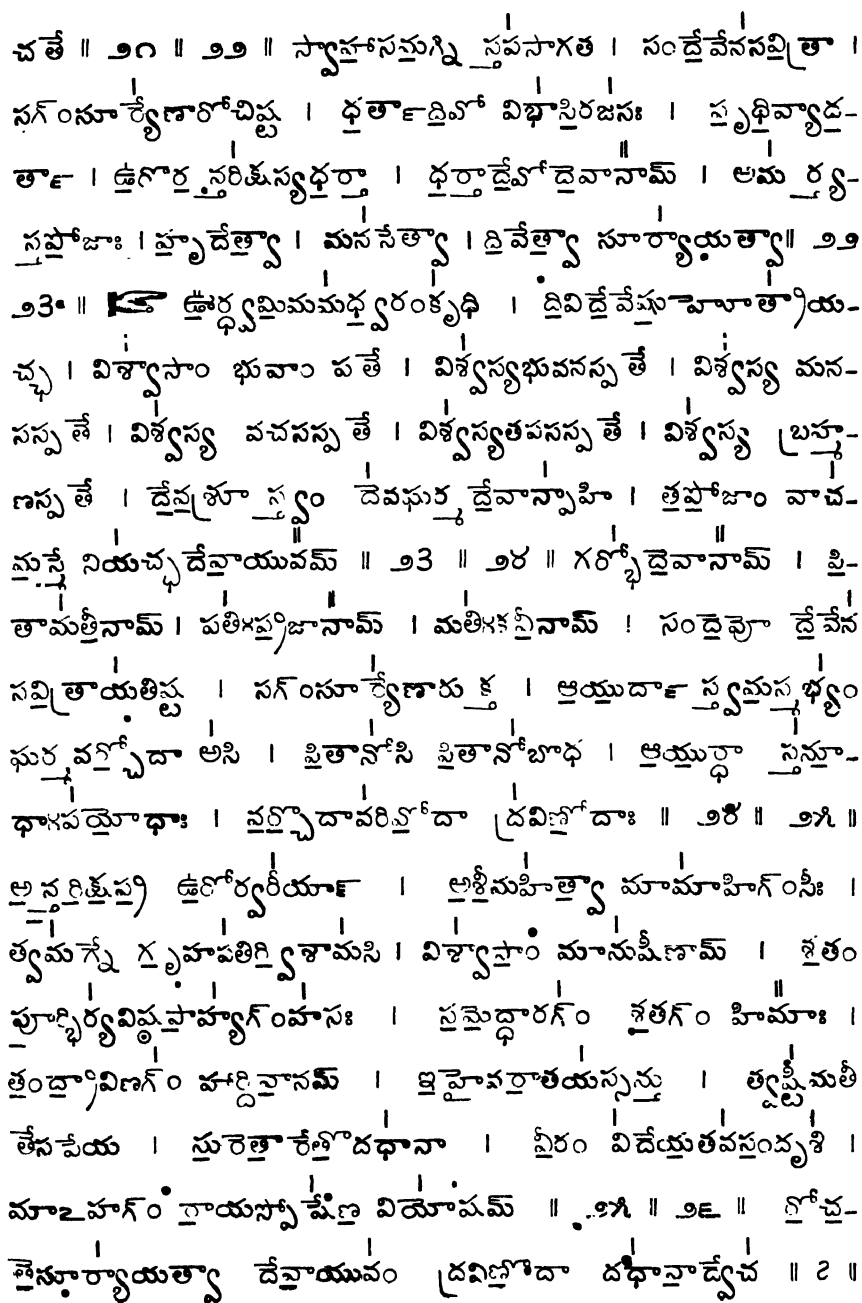 చతే ॥ ౨౧ ॥ ౨౨ ॥ స్వాహాసమగ్ని స్తపసాగత । సందేవేనసవిత్రా ।
సగ్ంసూర్యేణారోచిష్ట । ధర్తాదివో విభాసిరజసః । పృథివ్యాధ-
ర్తా । ఉరోర న్తరిక్షస్యధర్తా । ధర్తాదేవోదేవానామ్ । అమ ర్త్య-
స్తపోజాః । హృదేత్వా । మనసేత్వా । దివేత్వా సూర్యాయత్వా॥ ౨౨
౨౩ ॥ ఊర్ధ్వమిమమధ్వరంకృధి । దివిదేవేషు హోత్రాయ-
చ్ఛ । విశ్వాసాం భువాం పతే । విశ్వస్యభువనస్పతే । విశ్వస్య మన-
సస్పతే । విశ్వస్య వచసస్పతే । విశ్వస్యతపసస్పతే । విశ్వస్య బ్రహ్మ-
ణస్పతే । దేవశ్రూ స్త్వం దేవఘర్మ దేవాన్పాహి । తపోజాం వాచ-
మస్మే నియచ్ఛదేవాయువమ్ ॥ ౨౩ ॥ ౨౪ ॥ గర్భోదేవానామ్ । పి-
తామతీనామ్ । పతిఃప్రజానామ్ । మతిఃకవీనామ్ । సందేవో దేవేన
సవిత్రాయతిష్ట । సగ్ంసూర్యేణారుక్త । ఆయుర్దా స్త్వమస్మభ్యం
ఘర్మవర్చోదా అసి । పితానోసి పితానోబోధ । ఆయుర్ధా స్తనూ-
ధాఃపయోధాః । వర్చోదావరివోదా ద్రవిణోదాః ॥ ౨౪ ॥ ౨౫ ॥
అన్తరిక్షప్ర ఉరోర్వరీయా । అశీమహిత్వా మామాహిగ్ంసీః ।
త్వమగ్నే గృహపతిర్విశామసి । విశ్వాసాం మానుషీణామ్ । శతం
పూర్భిర్యవిష్ఠపాహ్యగ్ంహసః । సమేద్ధారగ్ం శతగ్ం హిమాః ।
తంద్రావిణగ్ం హార్దివానమ్ । ఇహైవరాతయస్సన్తు । త్వష్టీమతీ
తేసపేయ । సురేతా రేతోదధానా । వీరం విదేయతవసందృశి ।
మాఽహగ్ం రాయస్పోషేణ వియోషమ్ ॥ ౨౫ ॥ ౨౬ ॥ రోచ-
తేసూర్యాయత్వా దేవాయువం ద్రవిణోదా దధానాద్వేచ ॥ ౭ ॥